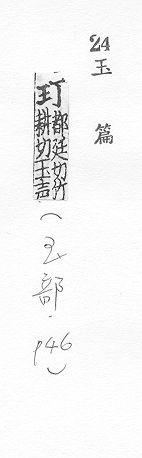 24玉篇
玎都廷切竹耕切玉声
(玉部・p46)